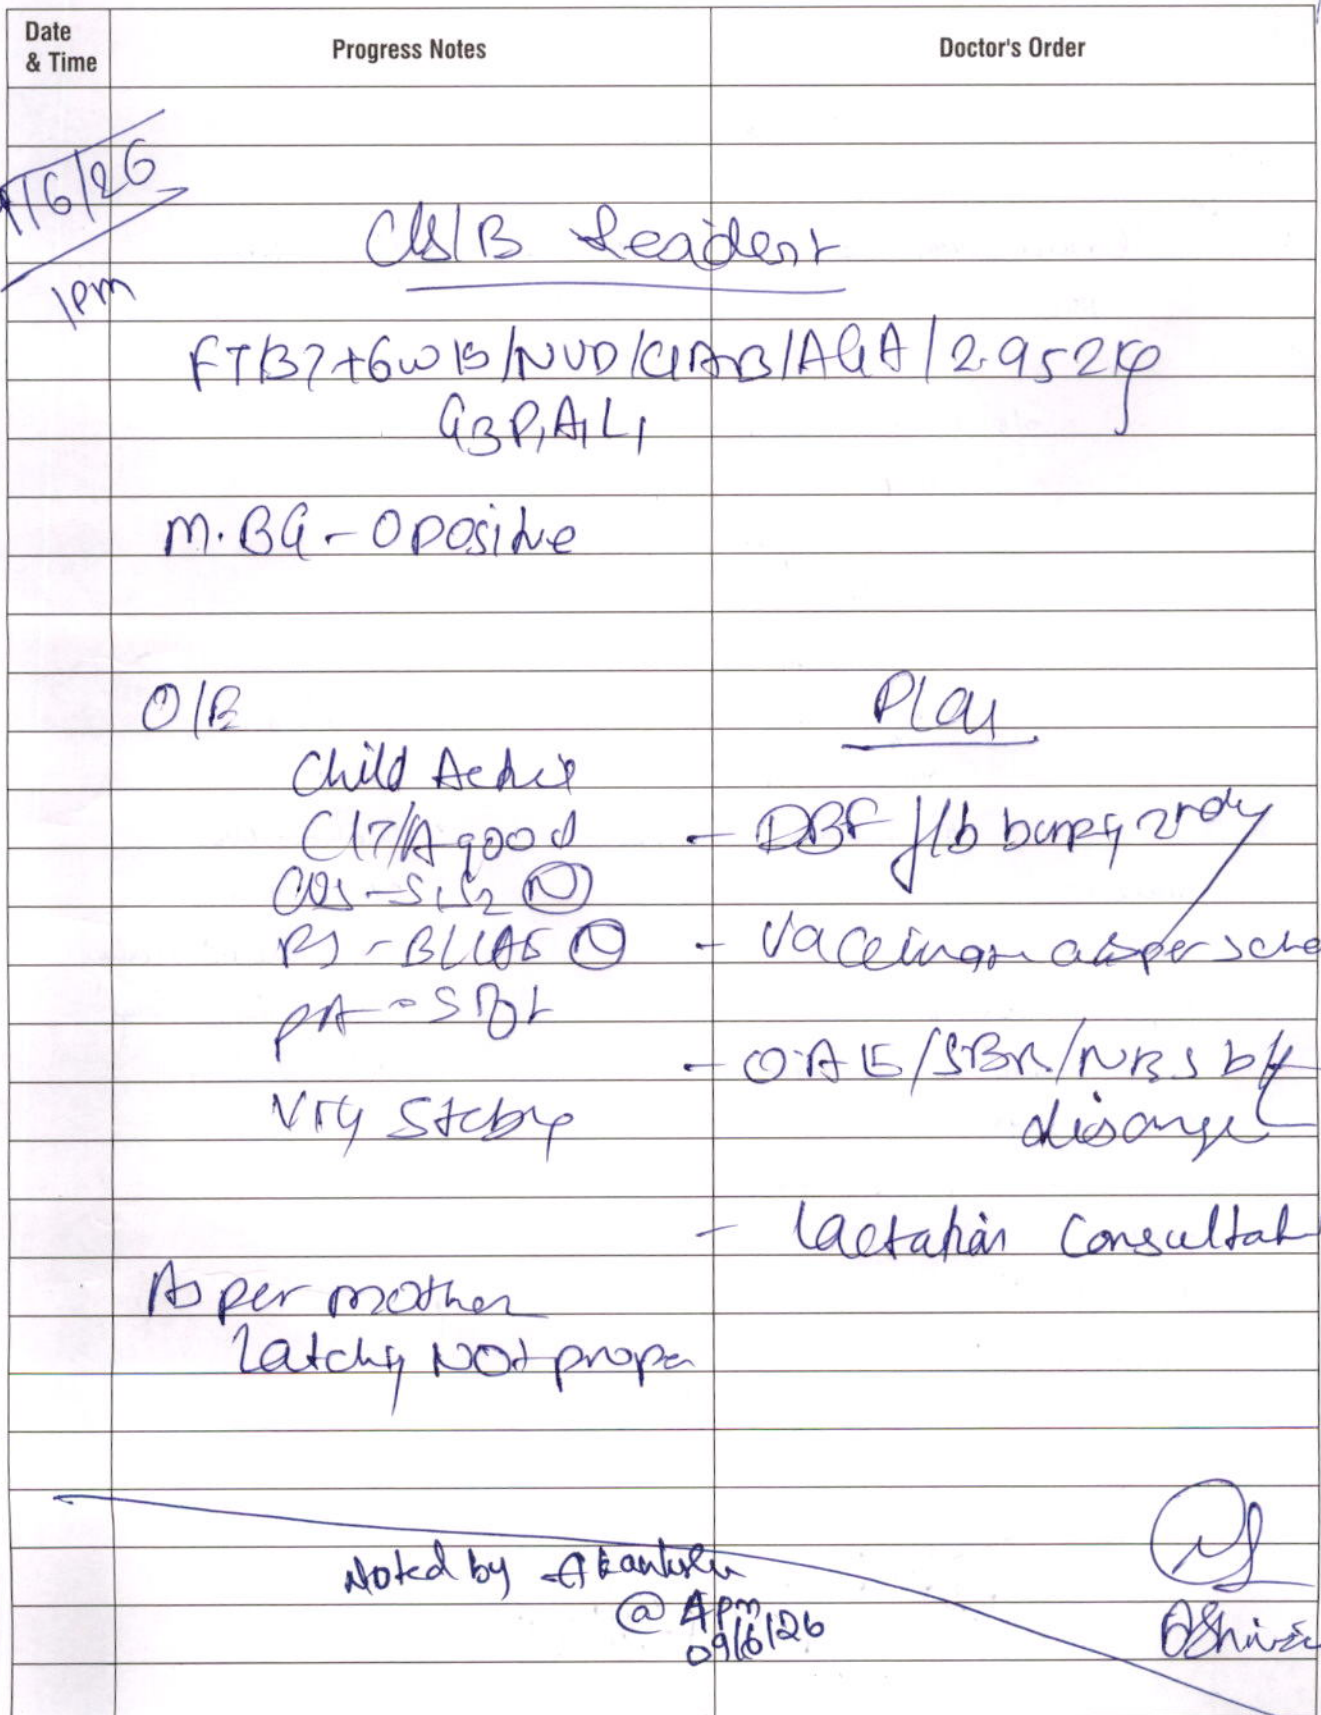 Date
& Time
Progress Notes
Doctor's Order
/6/26
1pm
CLS/B Resident
FT/37+6W/NVD/CIAB/AGA/2.952kg
G3P1A1L1
M.BG - O positive
O/E
Child Active
C/T/A good
CVS - S1S2 (N)
RS - BLAE (N)
PA - Soft
Vitally Stable
As per mother
latching Not proper
Plan
- DBF f/b burping
- Vaccination as per sche
- OAE/SBR/NBS b/f
discharge
- lactation Consultat
Noted by
@ 4pm
09/6/26